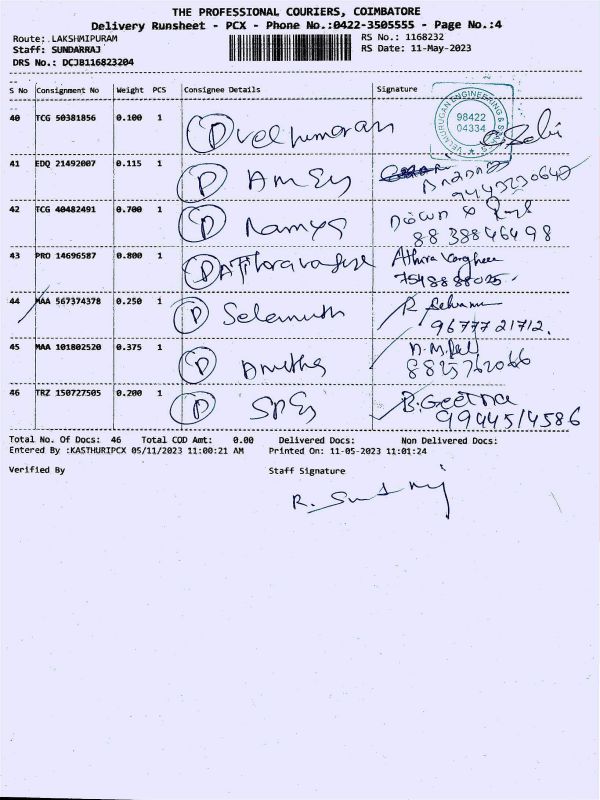 THE PROFESSIONAL COURIERS, COIMBATORE
Delivery Runsheet - PCX - Phone No.:0422-3505555 - Page No.:4
Route: LAKSHMIPURAM RS No.: 1168232
Staff: SUNDARRAJ RS Date: 11-May-2023
DRS No.: DCJB116823204
S No Consignment No Weight PCS Consignee Details Signature
40 TCG 50381856 0.100 1 D velkumaran
VELMURUGAN ENGINEERING &
98422
04334
41 EDQ 21492007 0.115 1 D
42 TCG 40482491 0.700 1 D Ramya
8838846498
43 PRO 14696587 0.800 1 D Athira Varghese
7548888025
44 MAA 567374378 0.250 1 D Selamuth
9677721712.
45 MAA 101802520 0.375 1 D Anitha
8825762066
46 TRZ 150727505 0.200 1 D B.Geetha
9944514586
Total No. Of Docs: 46 Total COD Amt: 0.00 Delivered Docs: Non Delivered Docs:
Entered By :KASTHURIPCX 05/11/2023 11:00:21 AM Printed On: 11-05-2023 11:01:24
Verified By Staff Signature